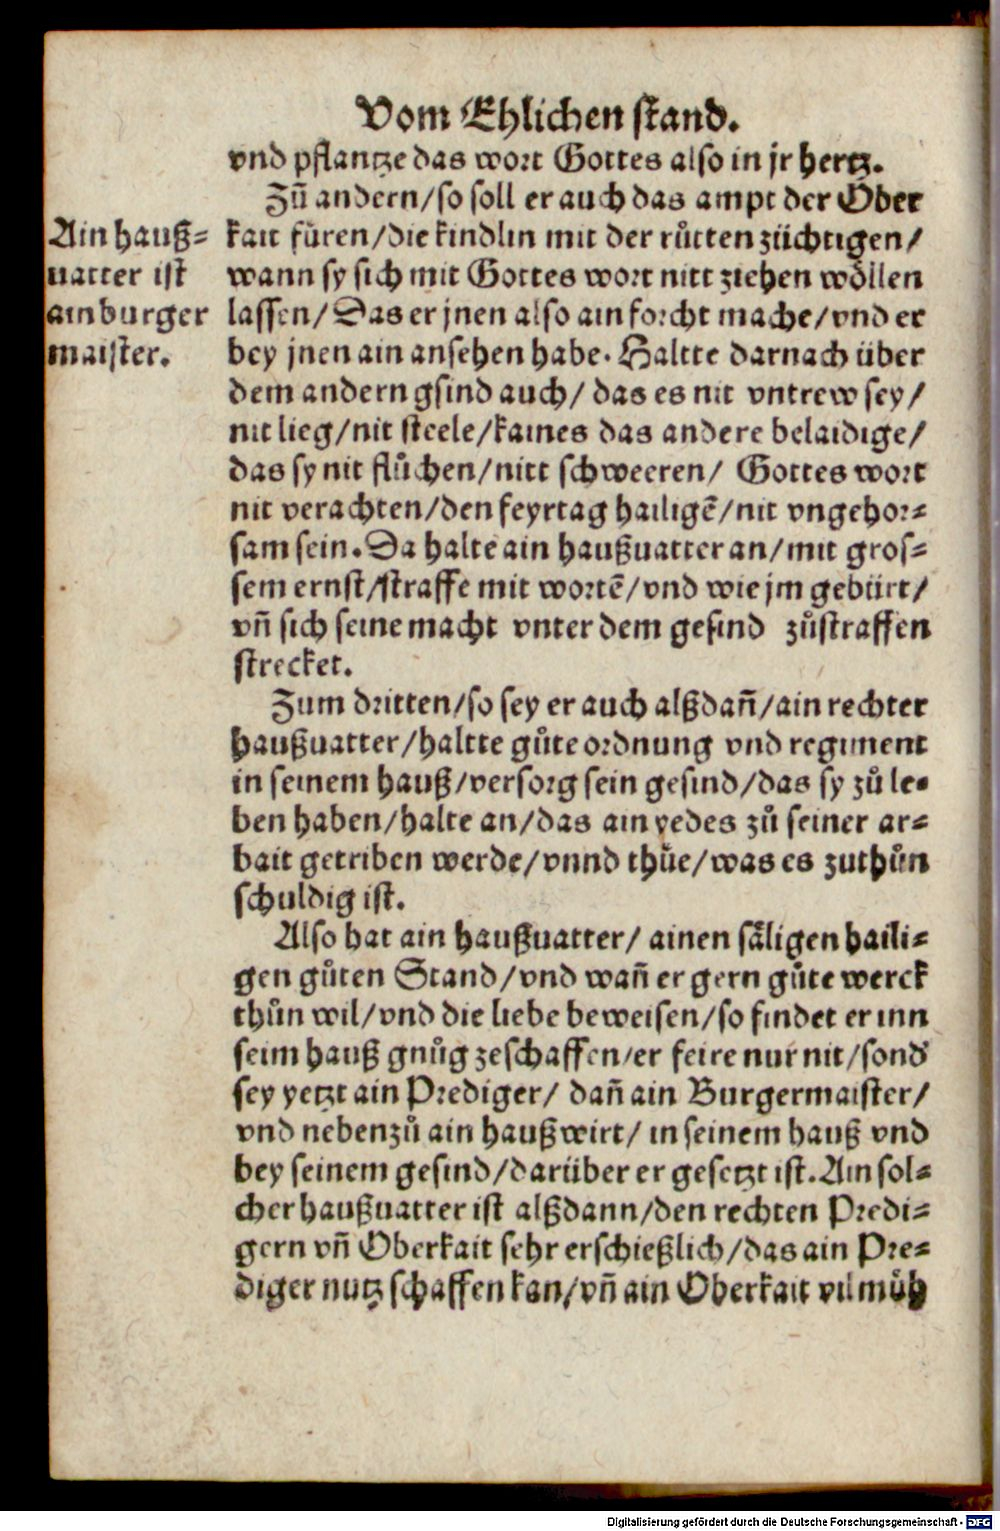 Vom Ehlichen stand.
vnd pflantze das wort Gottes also in jr hertz.
Zů andern/so soll er auch das ampt der Ober
Ain hauß=
uatter ist
ain burger
maister.
kait fůren/die kindlin mit der růtten züchtigen/
wann sy sich mit Gottes wort nitt ziehen wöllen
lassen/Das er jnen also ain forcht mache/vnd er
bey jnen ain ansehen habe. Haltte darnach über
dem andern gsind auch/ das es nit vntrew sey/
nit lieg/nit steele/kaines das andere belaidige/
das sy nit flůchen/nitt schweeren/ Gottes wort
nit verachten/den feyrtag hailigē/nit vngehor=
sam sein. Da halte ain haußuatter an/mit gros=
sem ernst/straffe mit wortē/vnd wie jm gebürt/
vñ sich seine macht vnter dem gesind zůstraffen
strecket.
Zum dritten/so sey er auch alßdañ/ain rechter
haußuatter/haltte gůte ordnung vnd regiment
in seinem hauß/versorg sein gesind/das sy zů le=
ben haben/halte an/das ain yedes zů seiner ar=
bait getriben werde/vnnd thůe/was es zuthůn
schuldig ist.
Also hat ain haußuatter/ ainen säligen haili=
gen gůten Stand/vnd wañ er gern gůte werck
thůn wil/vnd die liebe beweisen/so findet er inn
seim hauß gnůg zeschaffen/er feire nur nit/sond'
sey yetzt ain Prediger/ dañ ain Burgermaister/
vnd nebenzů ain haußwirt/ in seinem hauß vnd
bey seinem gesind/darüber er gesetzt ist. Ain sol=
cher haußuatter ist alßdann/den rechten Predi=
gern vñ Oberkait sehr erschießlich/das ain Pre=
diger nutz schaffen kan/vñ ain Oberkait vil můh
Digitalisierung gefördert durch die Deutsche Forschungsgemeinschaft - DFG